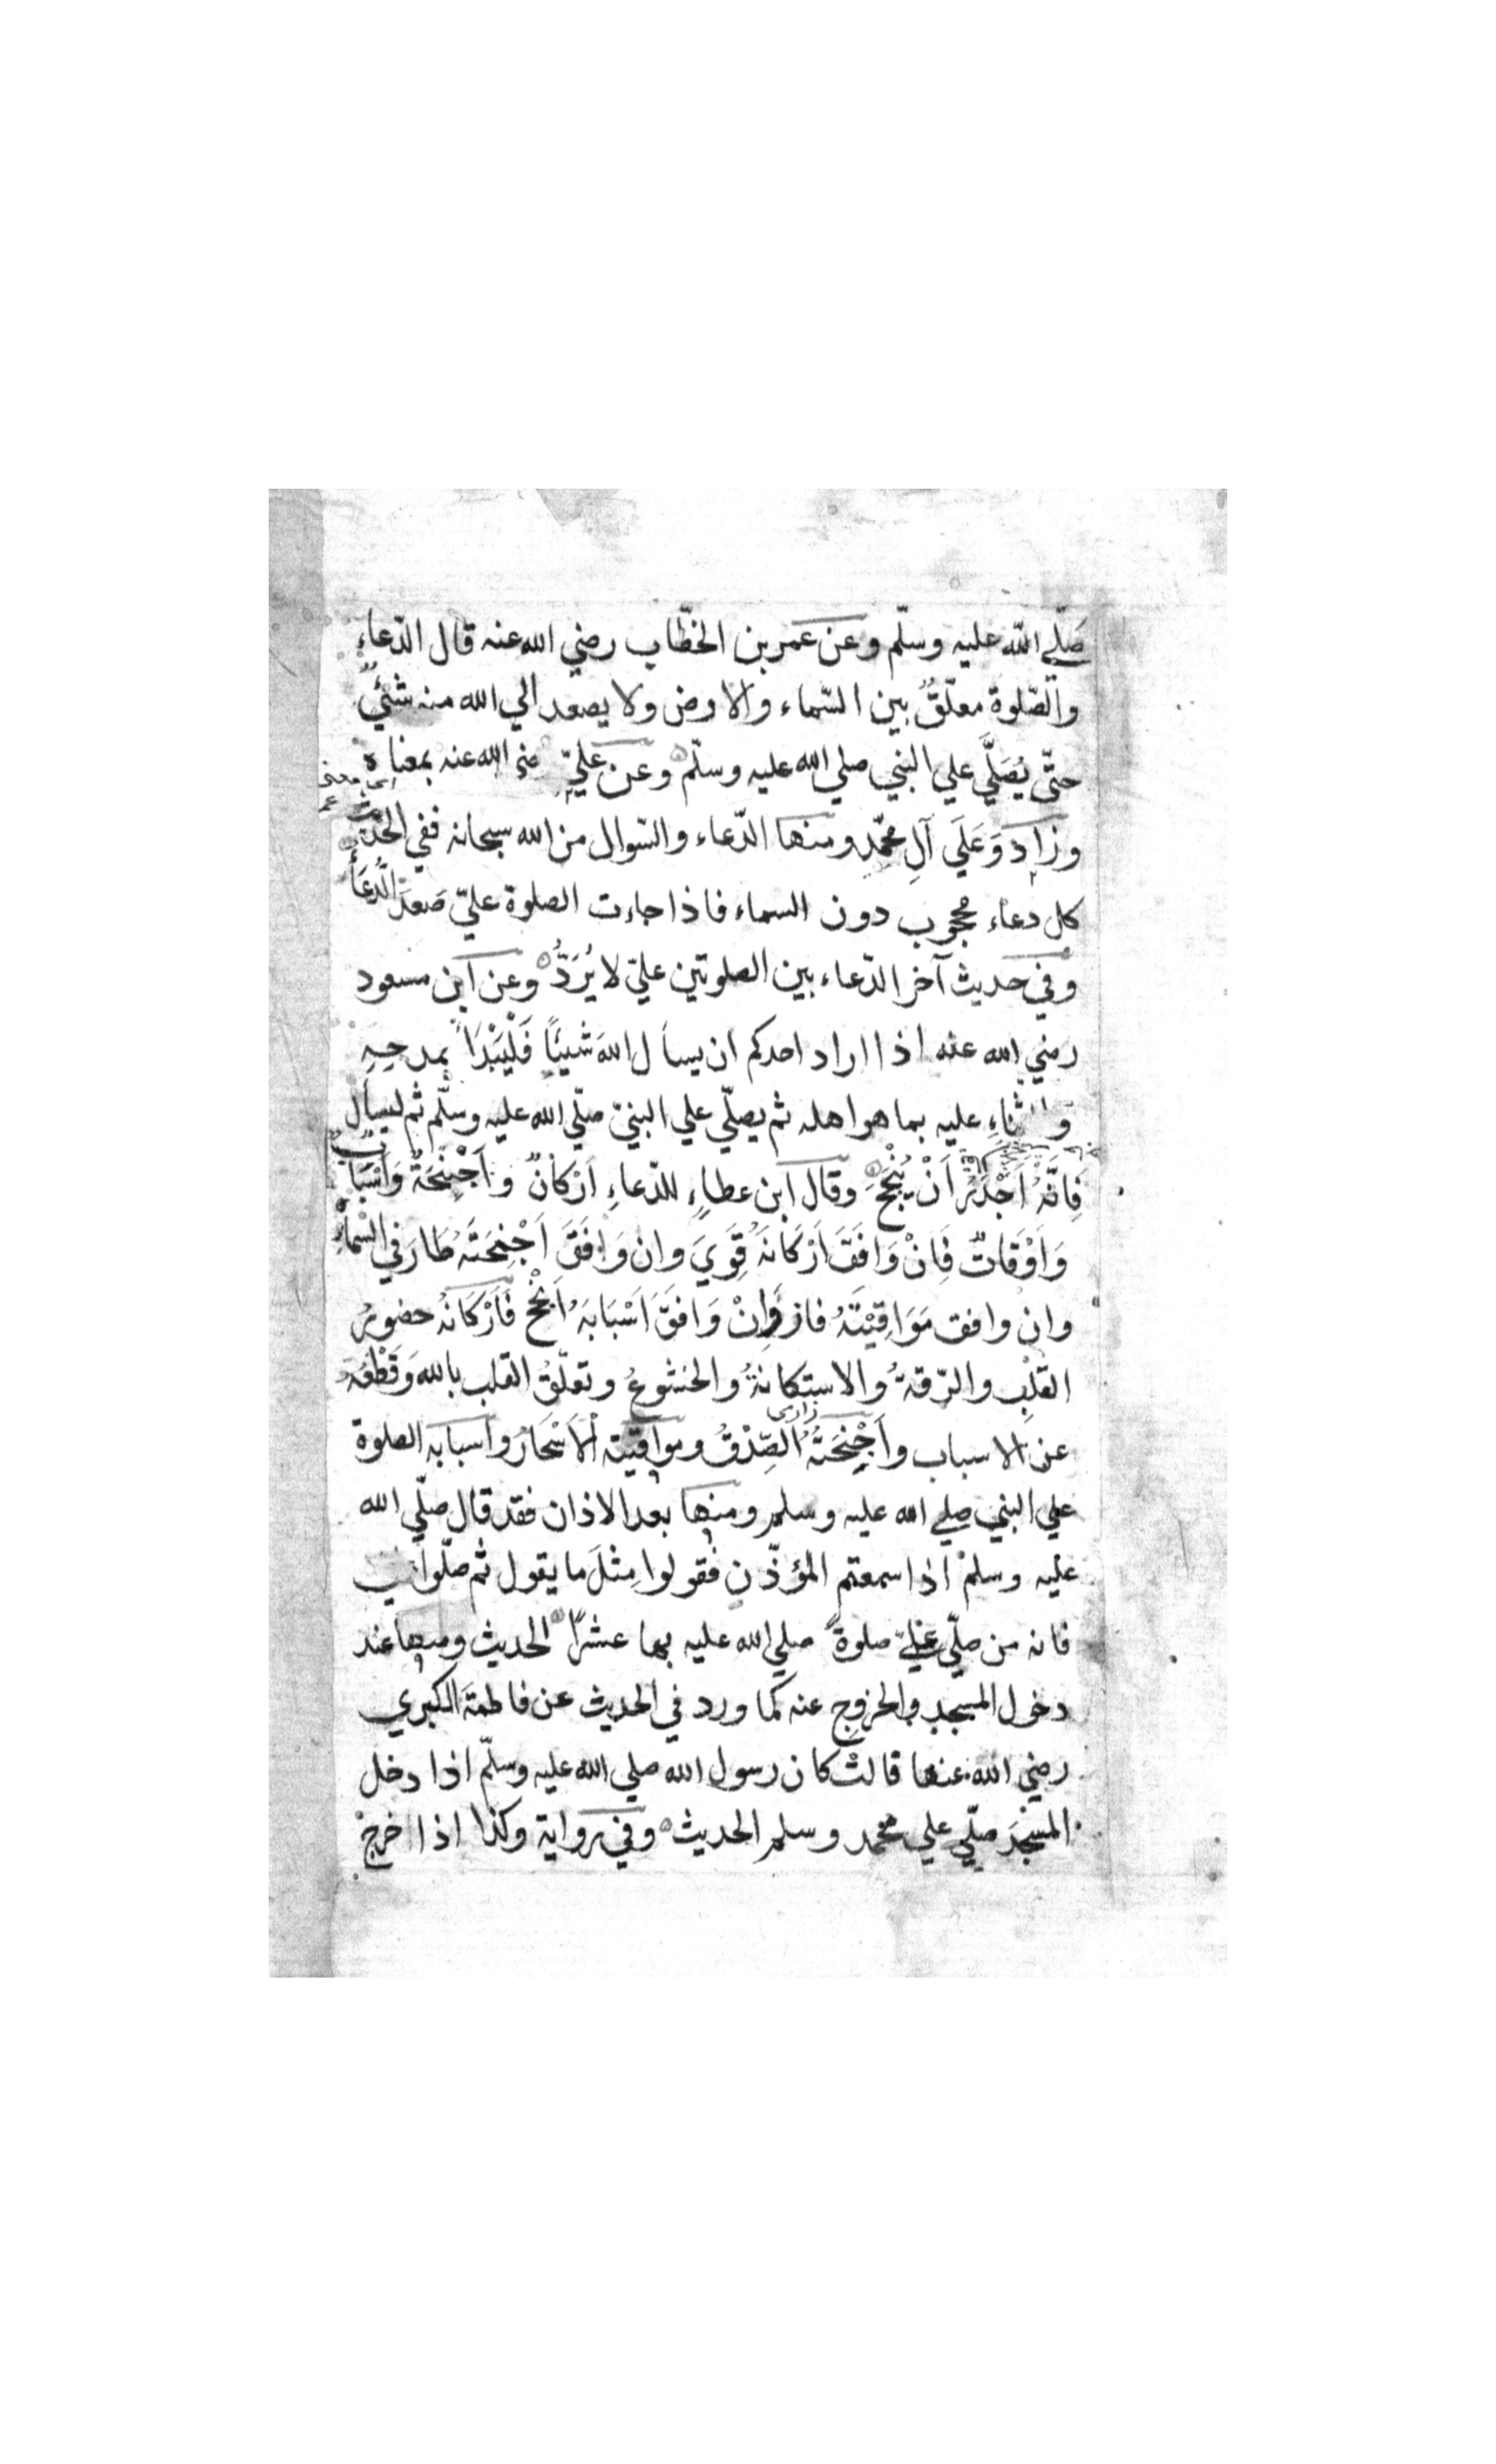 صَلّي الله عليه وسلّم وعن عمر بن الخطّاب رضي الله عنه قال الدّعاء
والصّلوة معلّقٌ بين السّماء والارض ولا يصعد الي الله منه شئيٌ
حتّي يُصَلَّي علي النبي صلي الله عليه وسلّم وعن عليّ رضي الله عنه بمعناه
وزاد وَعَلَي آلِ محمّدٍ ومنها الدّعاء والسّوال من الله سبحانه ففي الحديث
كل دعاء محجوب دون السماء فاذا جاءت الصلوة عليّ صَعَدَ الدُّعَاءُ
وفي حديث آخر الدّعاء بين الصلوتين عليّ لا يُرَدُّ وعن ابن مسعود
رضي الله عنه اذا اراد احدكم ان يسأل اللهَ شيئًا فَلْيَبْدَأ بمدحِهِ
والثناءِ عليه بما هو اهله ثم يصلّي علي النبيّ صلّي الله عليه وسلّم ثم ليسأل
فَاِنَّهُ اَجْدَرُ اَنْ يُنْجَحَ وقال ابن عطاءٍ للدّعاءِ اَرْكَانٌ واَجْنِحَةٌ وَاَسْبَابٌ
وَاَوْقَاتٌ فَاِنْ وَافَقَ اَرْكَانَهُ قَوِيَ وان وَافَقَ اَجْنِحَتَهُ طَارَ في السَّمَاءِ
وان وافق مَوَاقِيْتَهُ فاز وَاِنْ وَافَقَ اَسْبَابَهُ اَنْجَحَ فَاَرْكَانُهُ حضورُ
القلْبِ والرّقةُ والاستكانةُ والخشوعُ وتعلّقُ القلب بالله وَقَطْعُهُ
عن الاسباب واَجْنِحَتُهُ الصِّدْقُ ومواقيته اْلاَسْحَارُ واسبابه الصلوة
علي النبي صلي الله عليه وسلم ومنها بعد الاذان فقد قال صلّي الله
عليه وسلم اذا سمعتم المؤذّن فقولوا مِثْلَ ما يقول ثم صلّوا
فانه من صلّي عليّ صلوةً صلي الله عليه بها عشرًا الحديث ومنها عند
دخول المسجد والخروج عنه كما ورد في الحديث عن فاطمةَ الكبري
رضي الله عنها قالت كان رسول الله صلي الله عليه وسلّم اذا دخل
المسْجدَ صلّي علي محمد وسلم الحديث وفي رواية وكذا اذا خرج